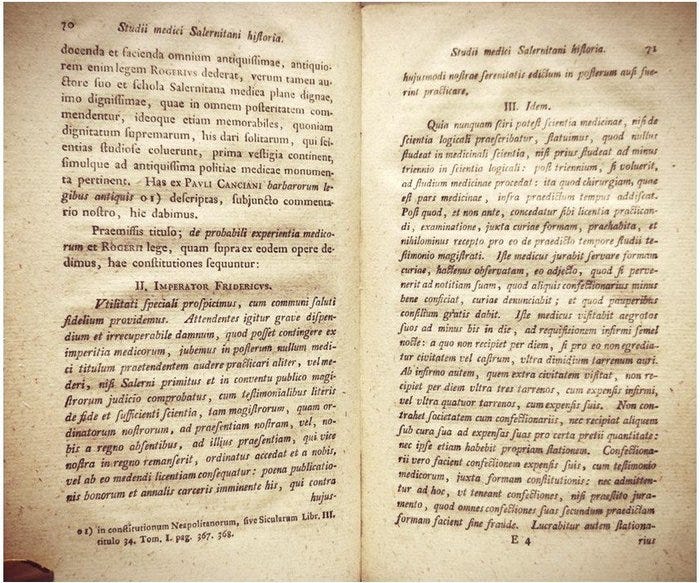 70 Studii medici Salernitani hiſtoria.
docenda et facienda omnium antiquiſſimae, antiquio-
rem enim legem ROGERIUS dederat, verum tamen au-
ctore ſuo et ſchola Salernitana medica plane dignae,
imo digniſſimae, quae in omnem poſteritatem com-
mendentur, ideoque etiam memorabiles, quoniam
dignitatum ſupremarum, his dari ſolitarum, qui ſci-
entias ſtudioſe coluerunt, prima veſtigia continent,
ſimulque ad antiquiſſima politiae medicae monumen-
ta pertinent. Has ex PAVLI CANCIANI barbarorum le-
gibus antiquis 01) deſcriptas, ſubjuncto commenta-
rio noſtro, hic dabimus.
Praemiſſis titulo; de probabili experientia medico-
rum et ROGERII lege, quam ſupra ex eodem opere de-
dimus, hae conſtitutiones ſequuntur:
II. IMPERATOR FRIDERICVS.
Vtilitati ſpeciali proſpicimus, cum communi ſaluti
fidelium providemus. Attendentes igitur grave diſpen-
dium et irrecuperabile damnum, quod poſſet contingere ex
imperitia medicorum, jubemus in poſterum nullum medi-
ci titulum praetendentem audere practicari aliter, vel me-
deri, niſi Salerni primitus et in conventu publico magi-
ſtrorum judicio comprobatus, cum teſtimonialibus literis
de fide et ſufficienti ſcientia, tam magiſtrorum, quam or-
dinatorum noſtrorum, ad praeſentiam noſtram, vel, no-
bis a regno abſentibus, ad illius praeſentiam, qui vice
noſtra in regno remanſerit, ordinatus accedat et a nobis,
vel ab eo medendi licentiam conſequatur: poena publicatio-
nis bonorum et annalis carceris imminente his, qui contra
hujus-
01) in conſtitutionum Neapolitanorum, ſive Sicularum Libr. III.
titulo 34. Tom. I. pag. 367. 368.
Studii medici Salernitani hiſtoria. 71
hujusmodi noſtrae ſerenitatis edictum in poſterum auſi fue-
rint practicare.
III. Idem.
Quia nunquam ſciri poteſt ſcientia medicinae, niſi de
ſcientia logicali praeſcribatur, ſtatuimus, quod nullus
ſtudeat in medicinali ſcientia, niſi prius ſtudeat ad minus
triennio in ſcientia logicali: poſt triennium, ſi voluerit,
ad ſtudium medicinae procedat: ita quod chirurgiam, quae
eſt pars medicinae, infra praedictum tempus addiſcat.
Poſt quod, et non ante, concedatur ſibi licentia practican-
di, examinatione, juxta curiae formam, praehabita, et
nihilominus recepto pro eo de praedicto tempore ſtudii te-
ſtimonio magiſtrati. Iſte medicus jurabit ſervare formam
curiae, hactenus obſervatam, eo adjecto, quod ſi perve-
nerit ad notitiam ſuam, quod aliquis confectionarius minus
bene conficiat, curiae denunciabit; et quod pauperibus
conſilium gratis dabit. Iſte medicus viſitabit aegrotos
ſuos ad minus bis in die, ad requiſitionem infirmi ſemel
nocte: a quo non recipiet per diem, ſi pro eo non egredia-
tur civitatem vel caſtrum, vltra dimidium tarrenum auri.
Ab infirmo autem, quem extra civitatem viſitat, non re-
cipiet per diem vltra tres tarrenos, cum expenſis infirmi,
vel vltra quatuor tarrenos, cum expenſis ſuis. Non con-
trahet ſocietatem cum confectionariis, nec recipiet aliquem
ſub cura ſua ad expenſas ſuas pro certa pretii quantitate:
nec ipſe etiam habebit propriam ſtationem. Confectiona-
rii vero facient confectionem expenſis ſuis, cum teſtimonio
medicorum, juxta formam conſtitutionis: nec admitten-
tur ad hoc, vt teneant confectiones, niſi praeſtito jura-
mento, quod omnes confectiones ſuas ſecundum praedictam
formam facient ſine fraude. Lucrabitur autem ſtationa-
E 4 rius